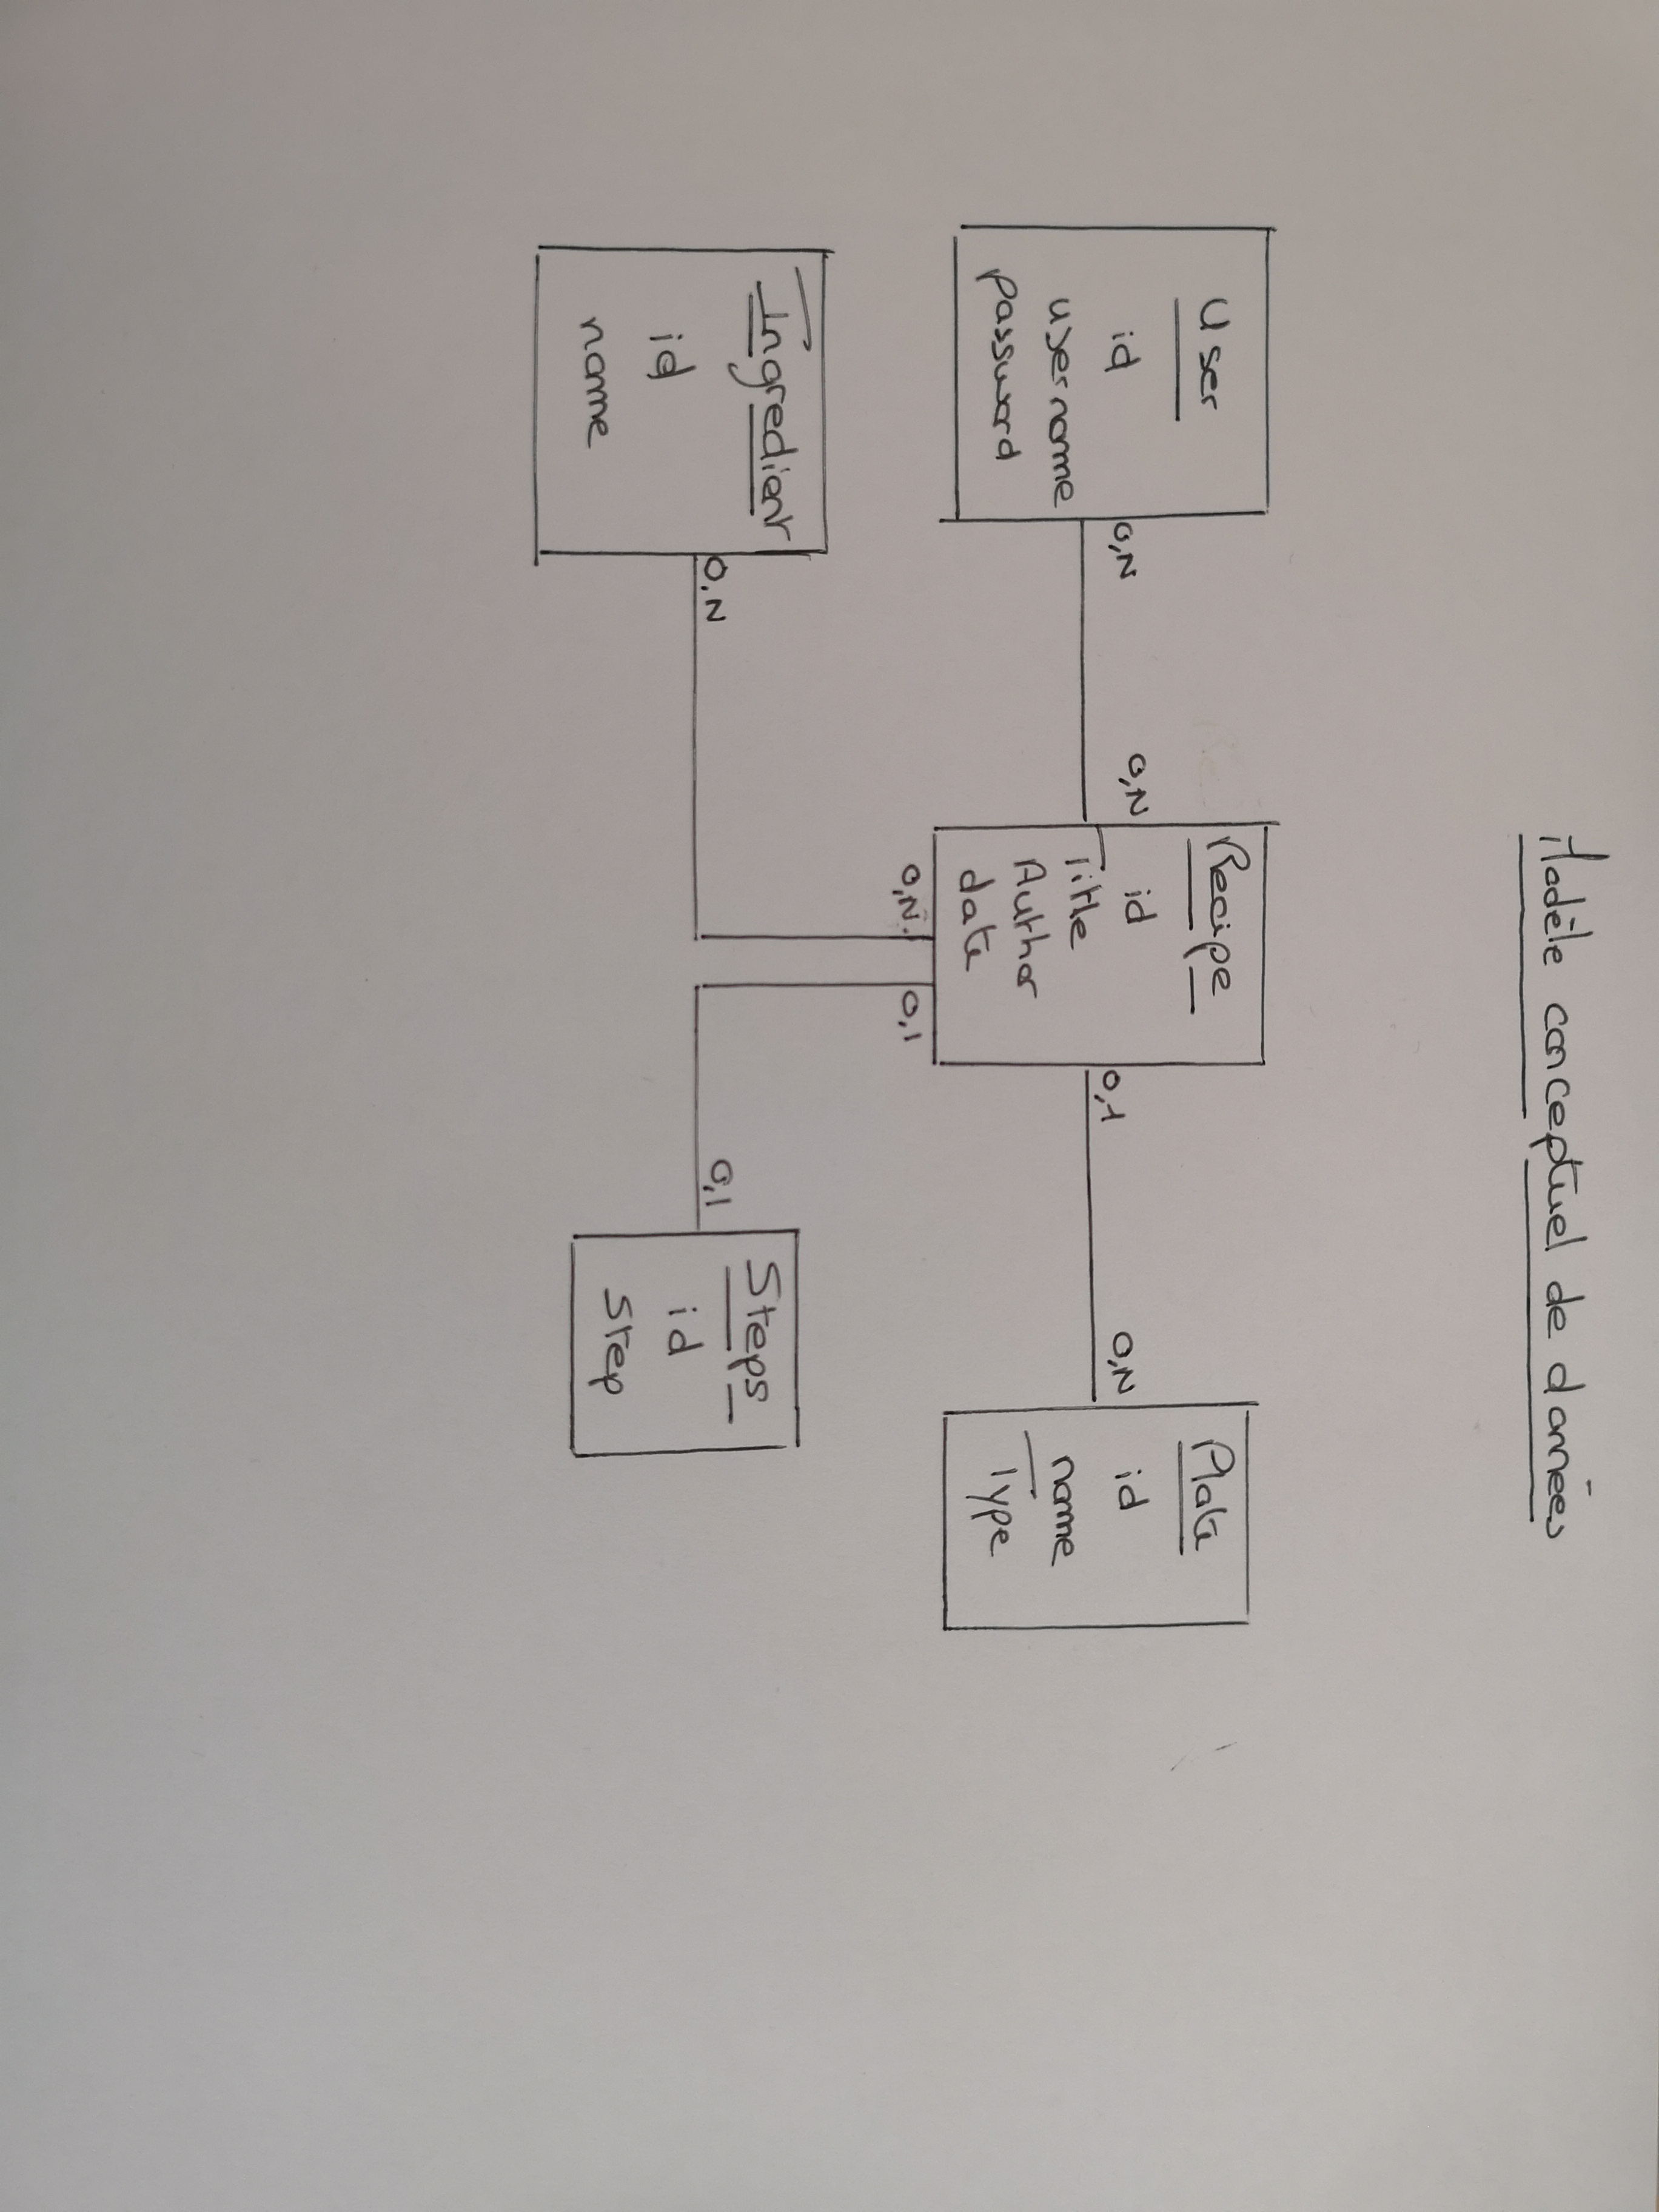 Modèle conceptuel de données
User
id
username
password
0,N
0,N
Recipe
id
Title
Author
date
0,1
0,N
Plate
id
name
Type
0,N
0,1
Ingredient
id
name
0,N
0,1
Steps
id
Step